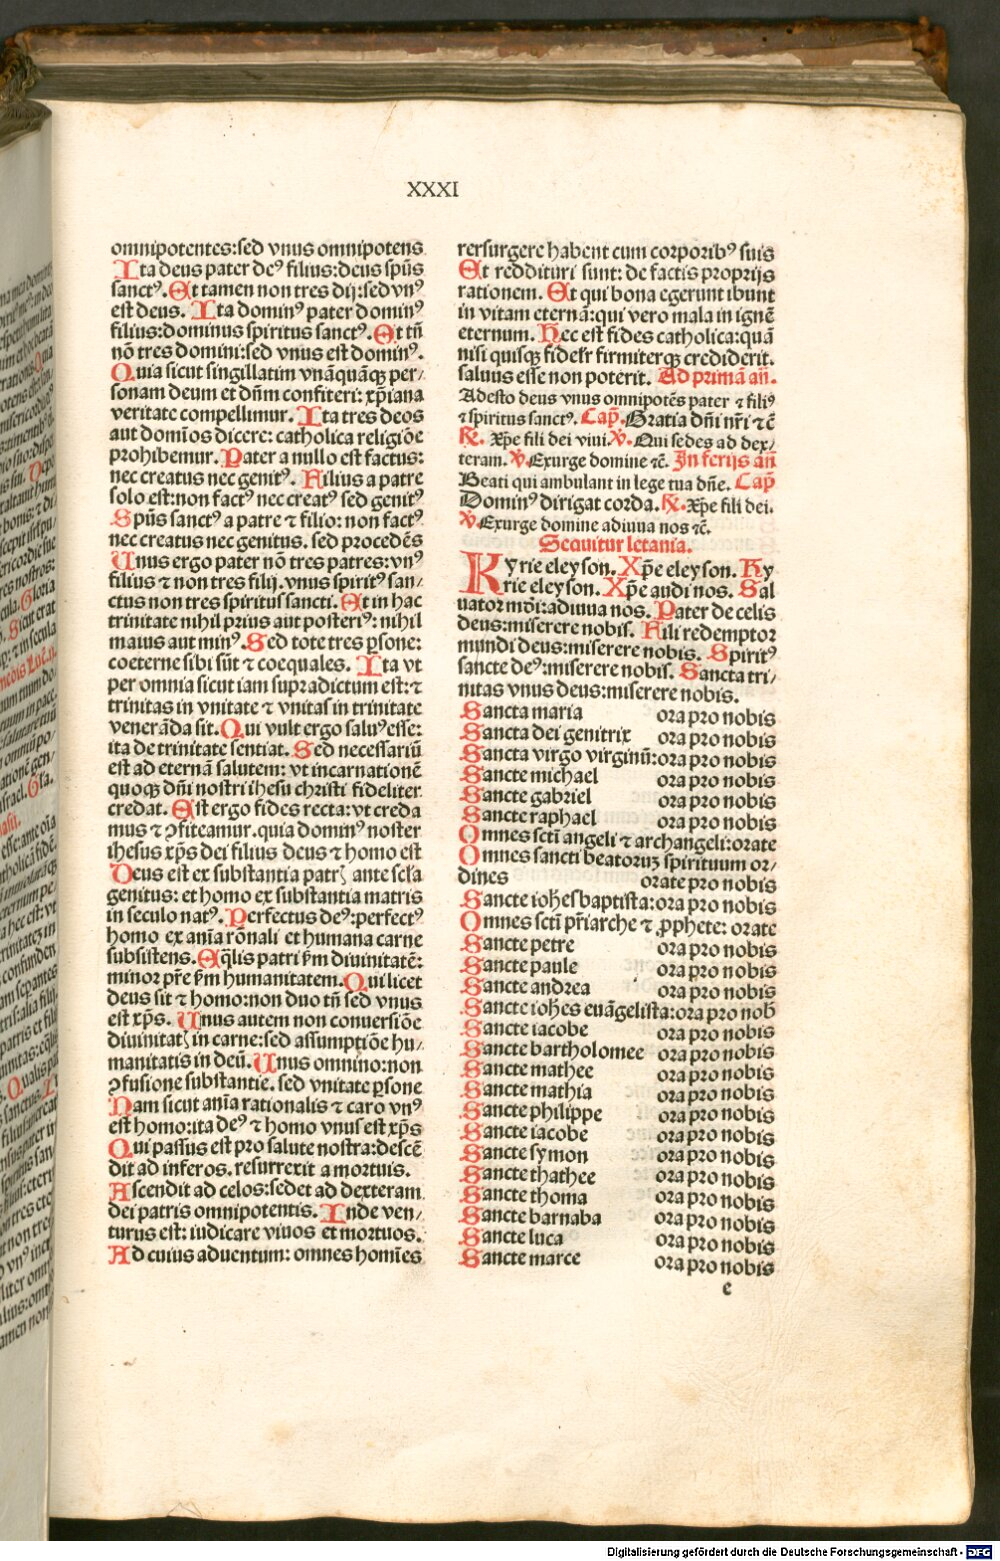 XXXI
omnipotentes:sed vnus omnipotens
Ita deus pater deꝰ filius:deus sp̃us
sanctꝰ. Et tamen non tres dij:sed vnꝰ
est deus. Ita dominꝰ pater dominꝰ
filius:dominus spiritus sanctꝰ. Et tñ
nõ tres domini:sed vnus est dominꝰ.
Quia sicut singillatim vnãquãqꝫ per/
sonam deum et dñm confiteri: xp̃iana
veritate compellimur. Ita tres deos
aut domĩos dicere: catholica religiõe
prohibemur. Pater a nullo est factus:
nec creatus nec genitꝰ. Filius a patre
solo est:non factꝰ nec creatꝰ sed genitꝰ
Sp̃us sanctꝰ a patre ⁊ filio: non factꝰ
nec creatus nec genitus. sed procedẽs
Unus ergo pater nõ tres patres:vnꝰ
filius ⁊ non tres filij. vnus spiritꝰ san/
ctus non tres spiritus sancti. Et in hac
trinitate nihil prius aut posteriꝰ: nihil
maius aut minꝰ. Sed tote tres ꝑsone:
coeterne sibi sũt ⁊ coequales. Ita vt
per omnia sicut iam supradictum est:⁊
trinitas in vnitate ⁊ vnitas in trinitate
venerãda sit. Qui vult ergo saluꝰ esse:
ita de trinitate sentiat. Sed necessariũ
est ad eternã salutem: vt incarnationẽ
quoqꝫ dñi nostri ihesu christi fideliter
credat. Est ergo fides recta: vt creda
mus ⁊ ꝯfiteamur. quia dominꝰ noster
ihesus xp̃s dei filius deus ⁊ homo est
Deus est ex substantia patrꝭ ante sc̃la
genitus: et homo ex substantia matris
in seculo natꝰ. Perfectus deꝰ:perfectꝰ
homo ex anĩa rõnali et humana carne
subsistens. Eq̃lis patri ẞm diuinitatẽ:
minor pr̃e ẞm humanitatem. Qui licet
deus sit ⁊ homo:non duo tñ sed vnus
est xp̃s. Unus autem non conuersiõe
diuinitatꝭ in carne:sed assumptiõe hu/
manitatis in deũ. Unus omnino:non
ꝯfusione substantie. sed vnitate ꝑsone
Nam sicut anĩa rationalis ⁊ caro vnꝰ
est homo:ita deꝰ ⁊ homo vnus est xp̃s
Qui passus est pro salute nostra:descẽ
dit ad inferos. resurrexit a mortuis.
Ascendit ad celos:sedet ad dexteram
dei patris omnipotentis. Inde ven/
turus est: iudicare viuos et mortuos.
Ad cuius aduentum: omnes homĩes
rersurgere habent cum corporibꝰ suis
Et reddituri sunt: de factis proprijs
rationem. Et qui bona egerunt ibunt
in vitam eternã:qui vero mala in ignẽ
eternum. Hec est fides catholica:quã
nisi quisqꝫ fideľr firmiterqꝫ crediderit.
saluus esse non poterit. Ad primã añ.
Adesto deus vnus omnipotẽs pater ⁊ filiꝰ
⁊ spiritus sanctꝰ. Cap̃. Gratia dñi nr̃i ⁊c̃
℟. Xp̃e fili dei viui. ℣. Qui sedes ad dex/
teram. ℣. Exurge domine ⁊c̃. In ferijs añ
Beati qui ambulant in lege tua dñe. Cap̃
Dominꝰ dirigat corda. ℟. Xp̃e fili dei.
℣. Exurge domine adiuua nos ⁊c̃.
Sequitur letania.
Kyrie eleyson. Xp̃e eleyson. Ky
rie eleyson. Xp̃e audi nos. Sal
uator mũdi:adiuua nos. Pater de celis
deus:miserere nobis. Fili redemptor
mundi deus:miserere nobis. Spiritꝰ
sancte deꝰ:miserere nobis. Sancta tri/
nitas vnus deus:miserere nobis.
Sancta maria ora pro nobis
Sancta dei genitrix ora pro nobis
Sancta virgo virginũ:ora pro nobis
Sancte michael ora pro nobis
Sancte gabriel ora pro nobis
Sancte raphael ora pro nobis
Omnes sctĩ angeli ⁊ archangeli:orate
Omnes sancti beatoruꝫ spirituum or/
dines orate pro nobis
Sancte ioh̃es baptista:ora pro nobis
Omnes sctĩ pr̃iarche ⁊ ꝓphete: orate
Sancte petre ora pro nobis
Sancte paule ora pro nobis
Sancte andrea ora pro nobis
Sancte ioh̃es euãgelista:ora pro nob̃
Sancte iacobe ora pro nobis
Sancte bartholomee ora pro nobis
Sancte mathee ora pro nobis
Sancte mathia ora pro nobis
Sancte philippe ora pro nobis
Sancte iacobe ora pro nobis
Sancte symon ora pro nobis
Sancte thathee ora pro nobis
Sancte thoma ora pro nobis
Sancte barnaba ora pro nobis
Sancte luca ora pro nobis
Sancte marce ora pro nobis
e
Digitalisierung gefördert durch die Deutsche Forschungsgemeinschaft - DFG